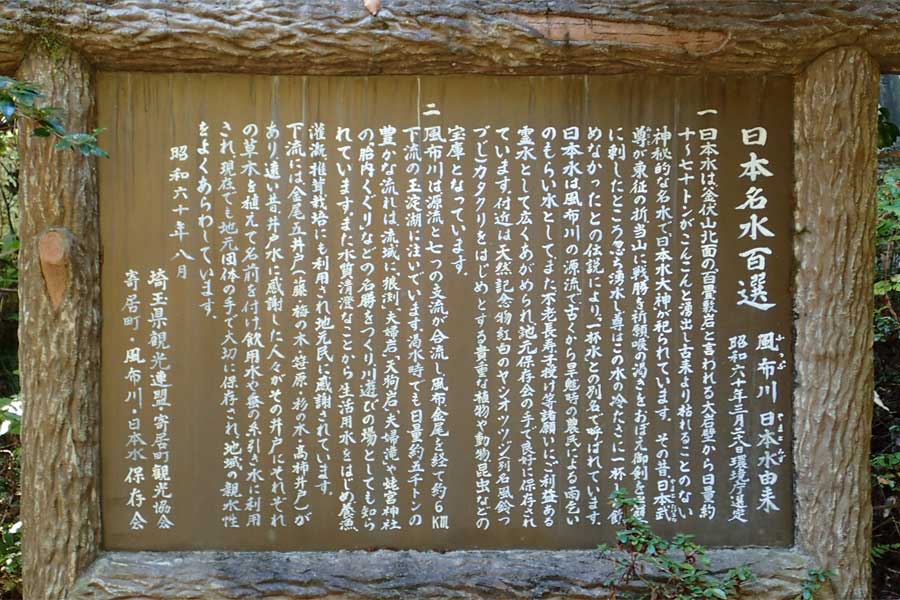 日本名水百選
風布川 日本水由来
昭和六十年三月二八日環境庁選定
一 日本水は釜伏山北面の百畳敷岩と言われる大岩壁から日量約
十〜七十トンがこんこんと湧出し古来より枯れることのない
神秘的な名水で日本水大神が祀られています。その昔日本武
尊が東征の折当山に戦勝を祈願喉の渇きをおぼえ御剣を岩壁
に刺したところ忽ち湧水し尊はこの水の冷たさに一杯しか飲
めなかったとの伝説により、一杯水との別名で呼ばれています。
日本水は風布川の源流で古くから旱魃時の農民による雨乞い
のもらい水としてまた不老長寿子授け等諸願いにご利益ある
霊水として広くあがめられ地元保存会の手で良好に保存され
ています。付近は天然記念物紅白のヤシオツツジ(別名風鈴つ
づじ)カタクリをはじめとする貴重な植物や動物昆虫などの
宝庫となっています。
二 風布川は源流と七つの支流が合流し風布金尾を経て約6KM
下流の玉淀湖に注いでいます。渇水時でも日量約五千トンの
豊かな流れは、流域に狼渕、夫婦岩、天狗岩、夫婦滝や姥宮神社
の「胎内くぐり」などの名勝をつくり川遊びの場としても知ら
れています。また水質清澄なことから生活用水をはじめ養魚
灌漑、椎茸栽培にも利用され地元民に感謝されています。
下流には金尾五井戸(藤・梅の木・笹原・杉の水・高柿井戸)が
あり遠い昔井戸水に感謝した人々がその井戸にそれぞれ
の草木を植えて名前を付け、飲用水や蚕の糸引き水に利用
され、現在でも地元団体の手で大切に保存され、地域の親水性
をよくあらわしています。
昭和六十年八月
埼玉県観光連盟・寄居町観光協会
寄居町・風布川・日本水保存会